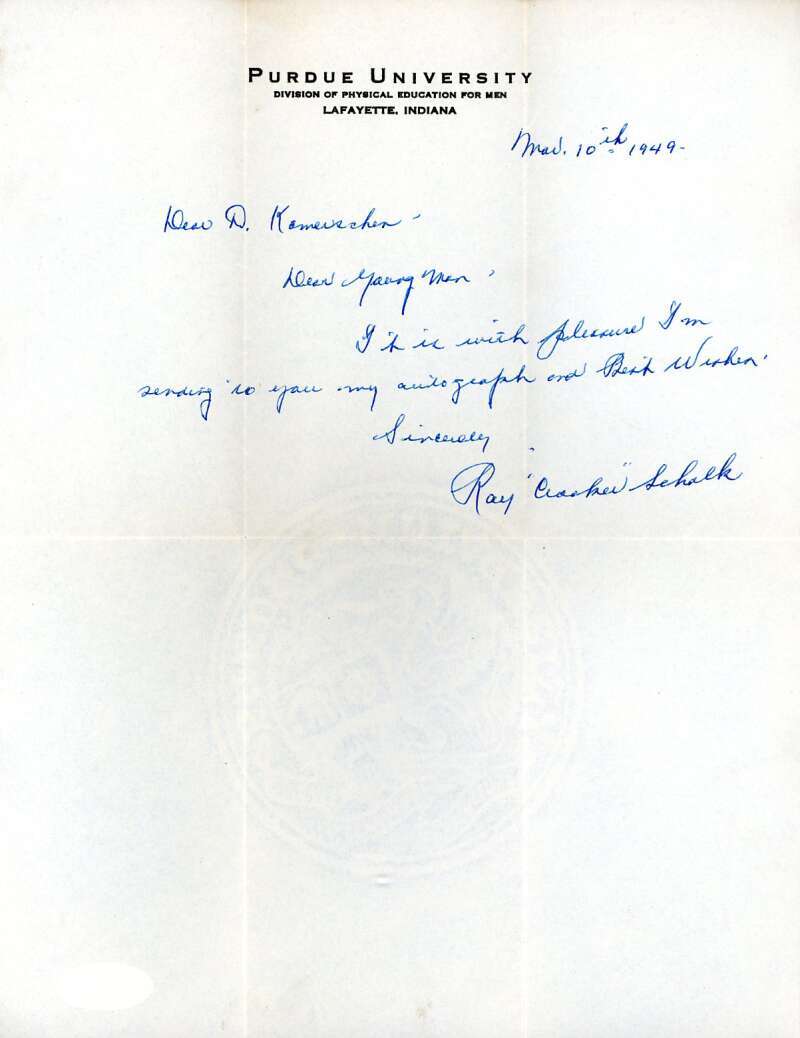 PURDUE UNIVERSITY
DIVISION OF PHYSICAL EDUCATION FOR MEN
LAFAYETTE, INDIANA
Mar. 10th 1949-
Dear D. Kamerschen
Dear Young Man
It is with pleasure I'm
sending to you my autograph and Best Wishes.
Sincerely
Ray "Cracker" Schalk